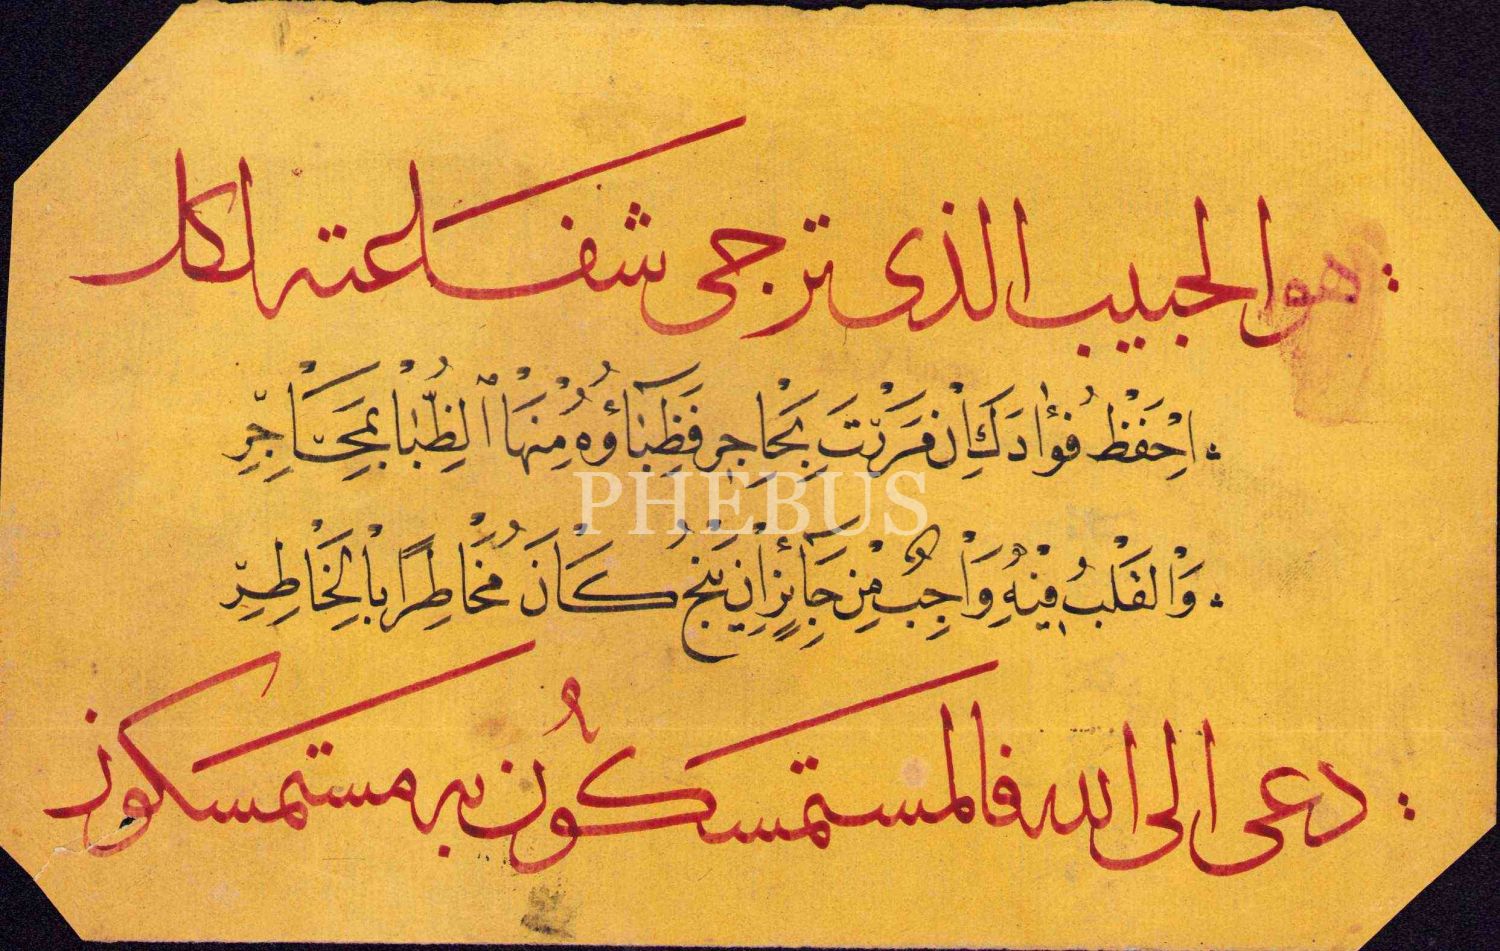 هو الحبيب الذى ترجى شفاعته لكل
اِحْفَظْ فُؤٰادَكَ اِنْ مَرَرْتَ بِحٰاجِرٍ فَظِبَٓاؤُهُ مِنْهَا الظُّبٰا بِمَحَاجِرِ
PHEBUS
وَالْقَلْبُ فِيْهِ وَاجِبٌ مِنْ جَٓائِزٍ اِنْ يَنْجُ كَانَ مُخَاطِرًا بِالْخَاطِرِ
دعى الى الله فالمستمسكُون به مستمسكون